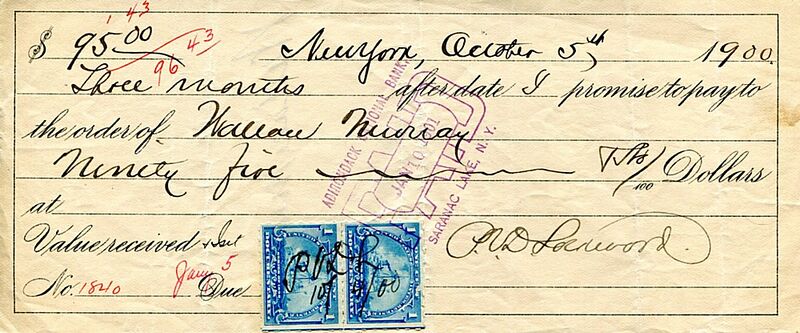 1 43
$ 95 00 43
96
New York, October 5th 1900.
Three months after date I promise to pay to
the order of Wallace Murray
Ninety five /100 Dollars
at
Value received & Int
No. 1840 Jany 5 Due
ADIRONDACK NATIONAL BANK,
PAID
JAN 10 1901
SARANAC LAKE, N.Y.
1 1
1 1 1 1
10/5/00